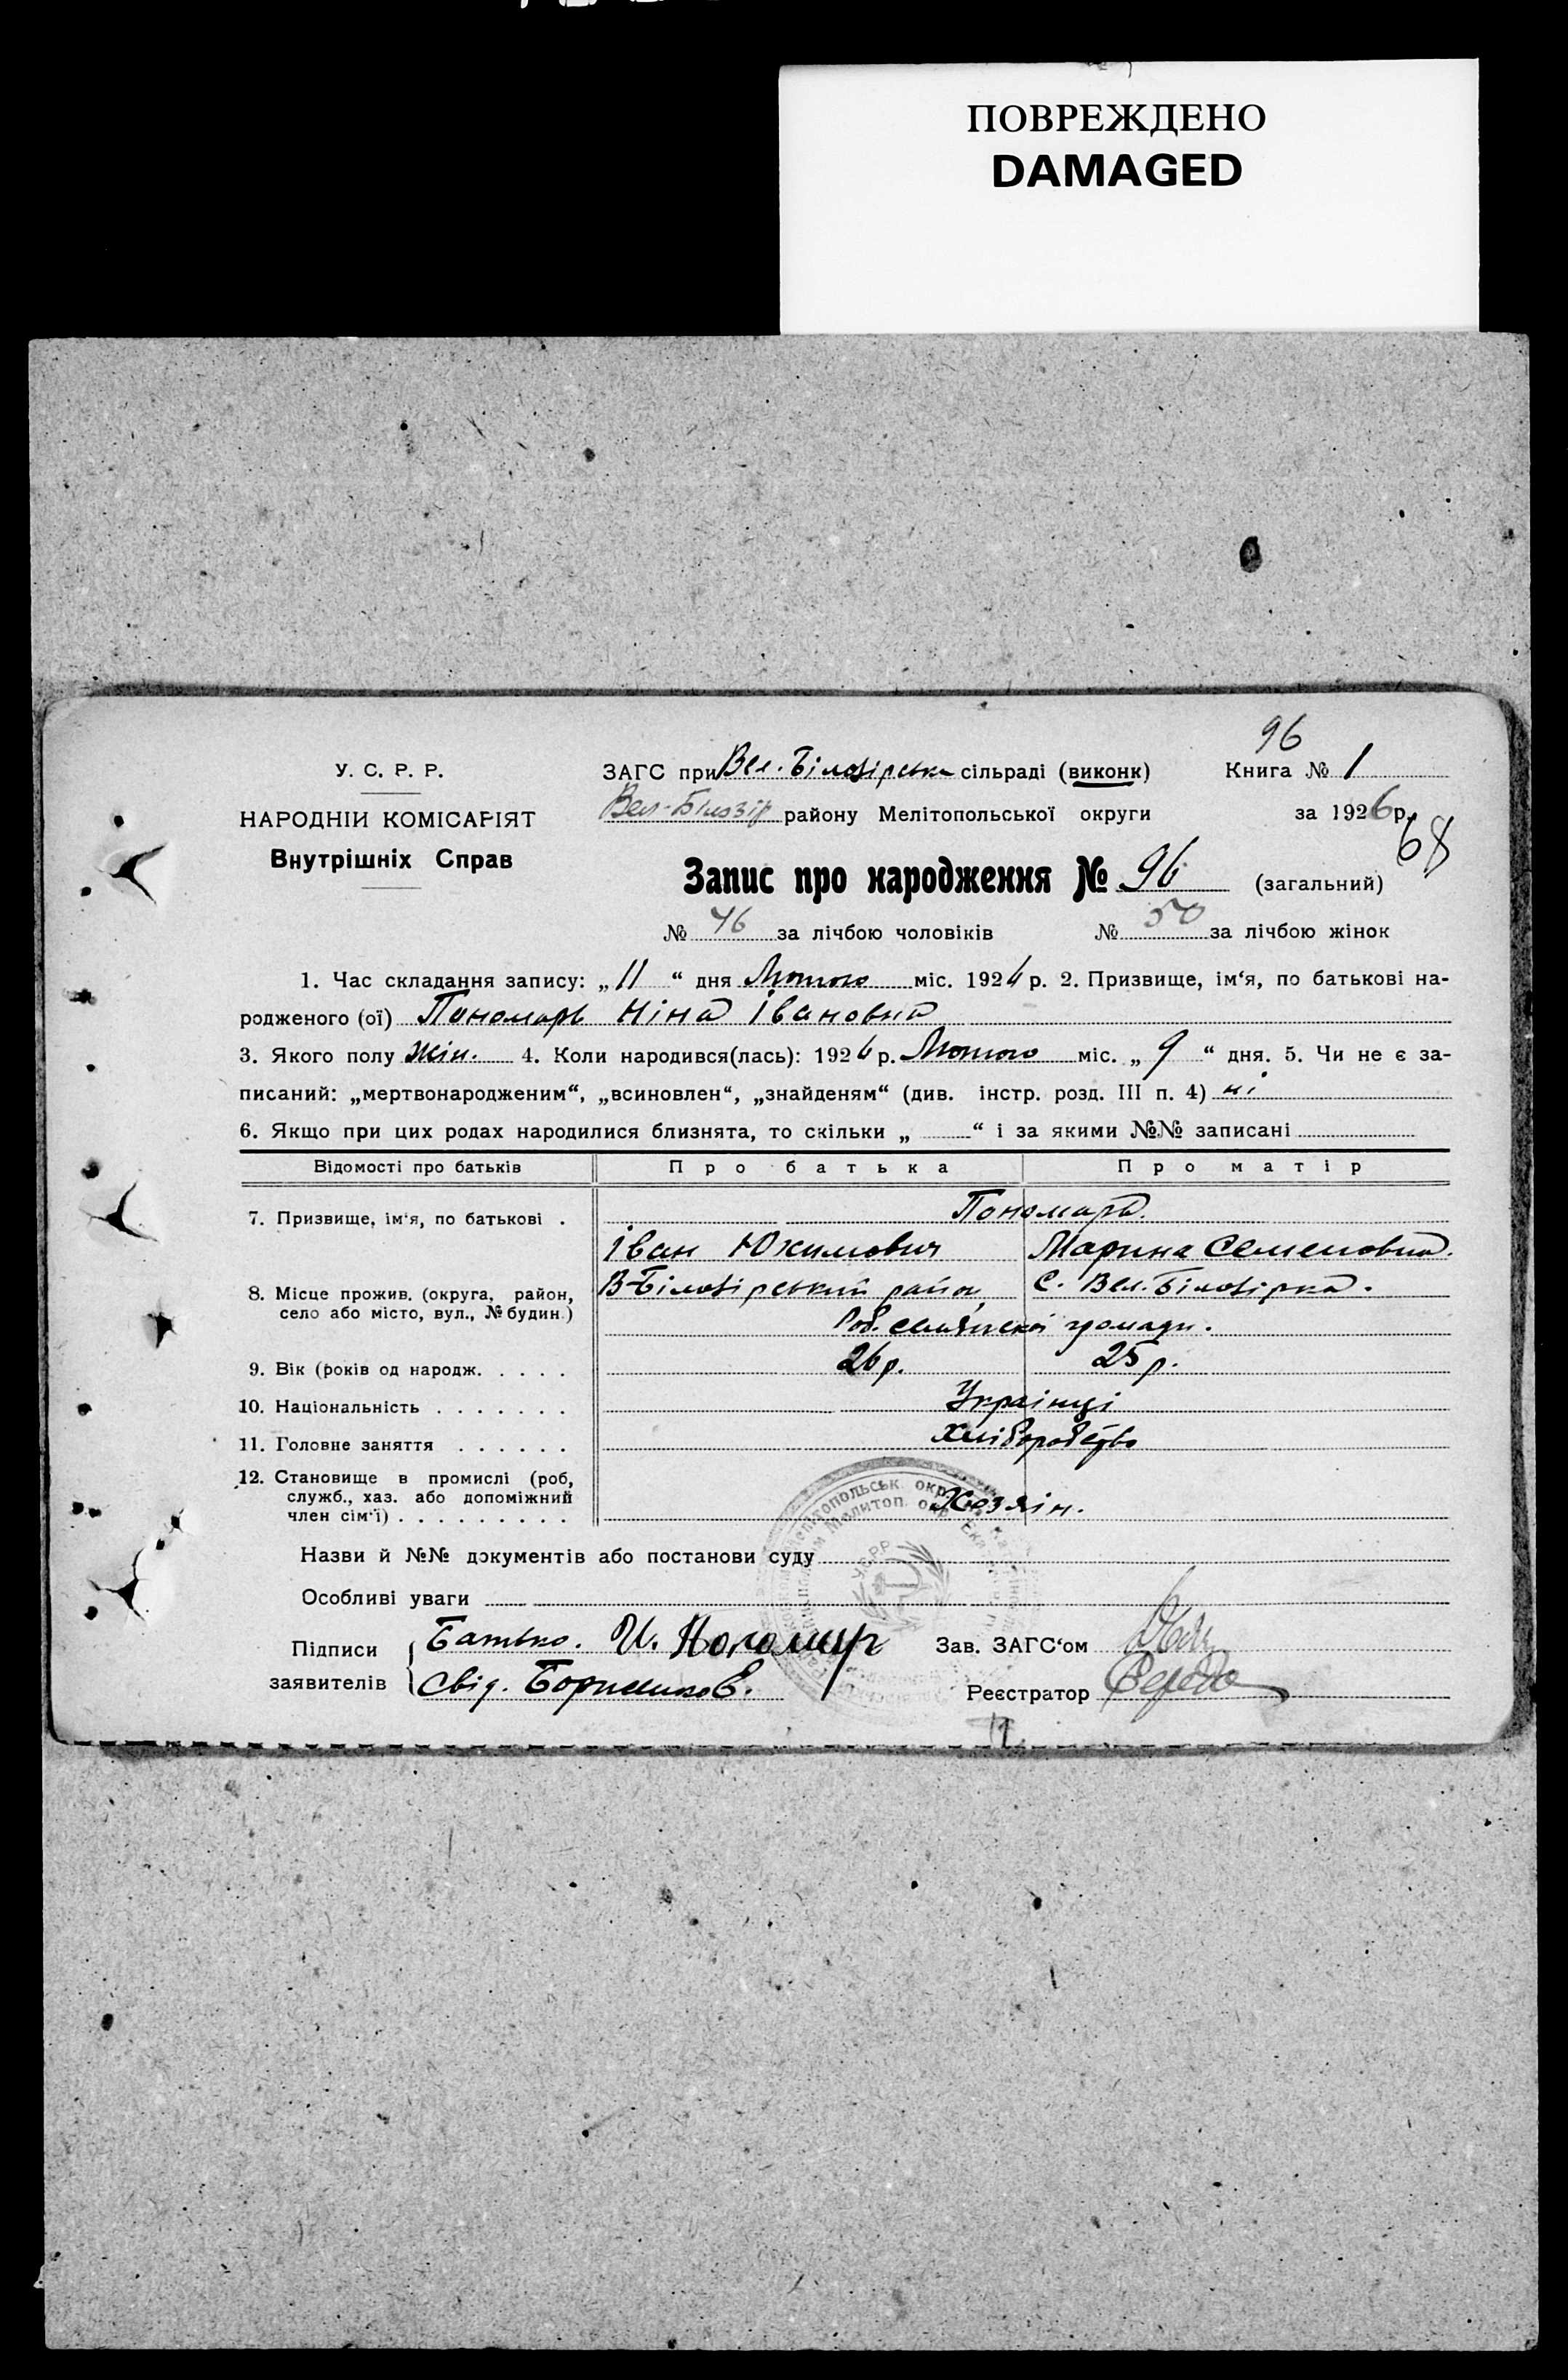 ПОВРЕЖДЕНО
DAMAGED
96
У. С. Р. Р.
ЗАГС при Вел. Білозірськ сільраді (виконк)
Книга № 1
НАРОДНІЙ КОМІСАРІЯТ
Вел-Білозір району Мелітопольської округи
за 1926 р.
68
Внутрішніх Справ
Запис про народження № 96 (загальний)
№ 46 за лічбою чоловіків № 50 за лічбою жінок
1. Час складання запису: „11“ дня Лютого міс. 1926 р. 2. Призвище, ім‘я, по батькові на-
родженого (ої) Пономарь Ніна Івановна
3. Якого полу жін. 4. Коли народився(лась): 1926 р. Лютого міс. „9“ дня. 5. Чи не є за-
писаний: „мертвонародженим“, „всиновлен“, „знайденям“ (див. інстр. розд. III п. 4) ні
6. Якщо при цих родах народилися близнята, то скільки „ “ і за якими №№ записані
Відомості про батьків Про батька Про матір
7. Призвище, ім‘я, по батькові . Пономарі
Іван Юхимович Марина Семеновна.
8. Місце прожив. (округа, район, село або місто, вул., № будин.) В-Білозірський район, С. Вел. Білозірка.
громади.
9. Вік (років од народж. . . . . 26 р. 25 р.
10. Національність . . . . . . . Українці
11. Головне заняття . . . . . . Хліборобство
12. Становище в промислі (роб,
служб., хаз. або допоміжний
член сім‘ї) . . . . . . . . . Хозяін.
Назви й №№ документів або постанови суду
Особливі уваги
Підписи заявителів
Батько. И. Пономар
Свід.
Зав. ЗАГС‘ом
Реєстратор